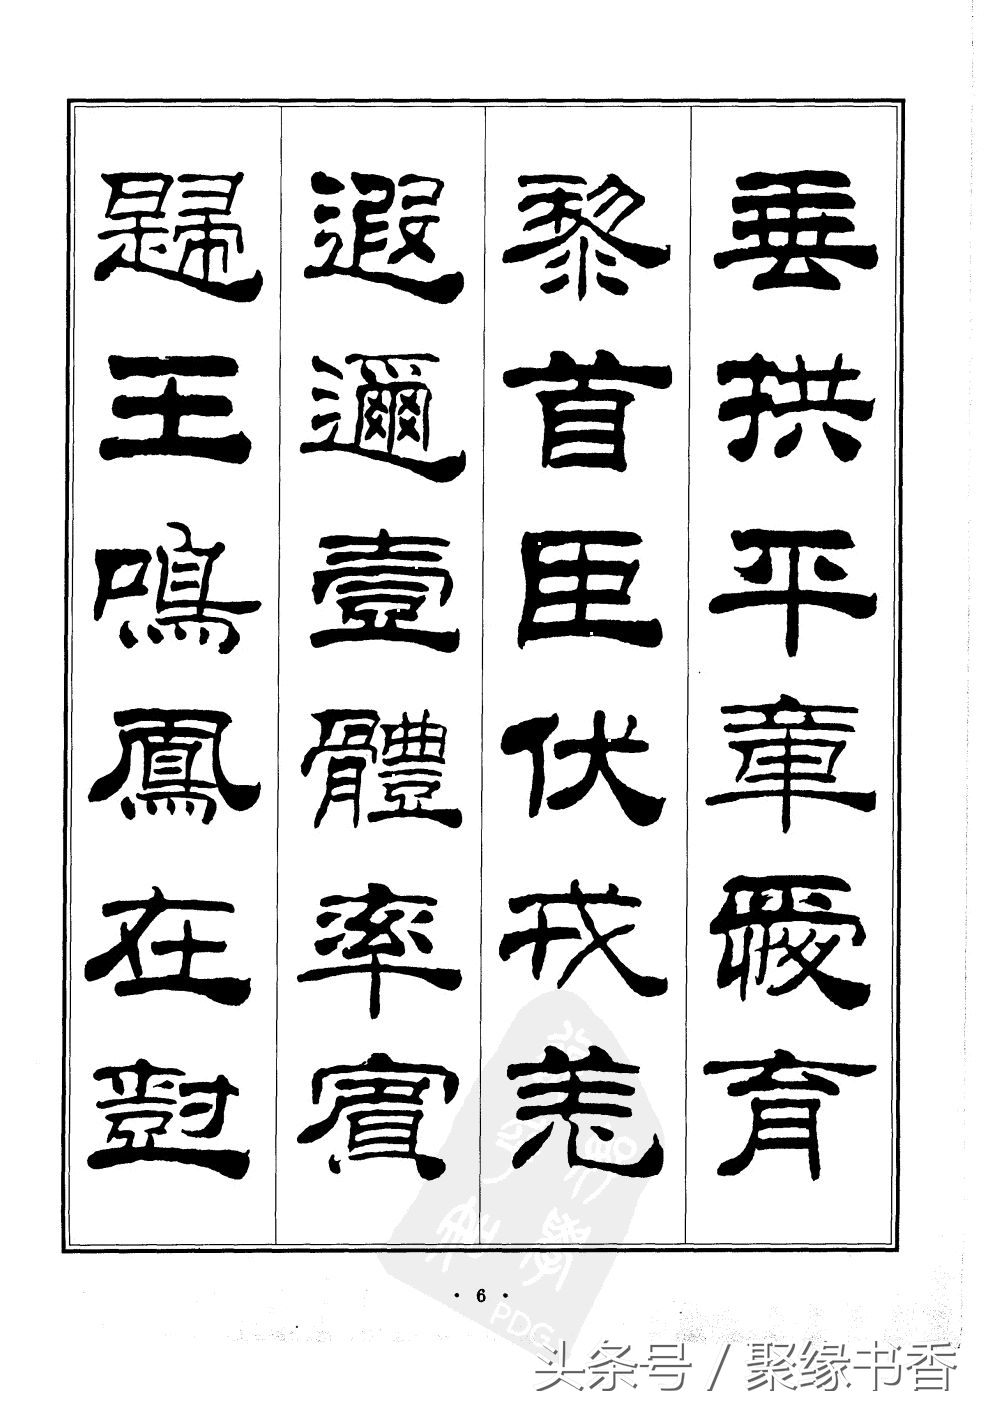 垂拱平章愛育
黎首臣伏戎羌
遐邇壹體率賓
歸王鳴鳳在樹
· 6 ·
PDG
头条号 / 聚缘书香